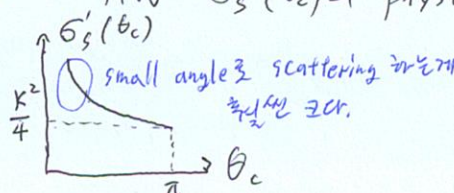 σₛ'(θ_c)
small angle로 scattering 하는게
훨씬 크다.
K²/4
π
θ_c